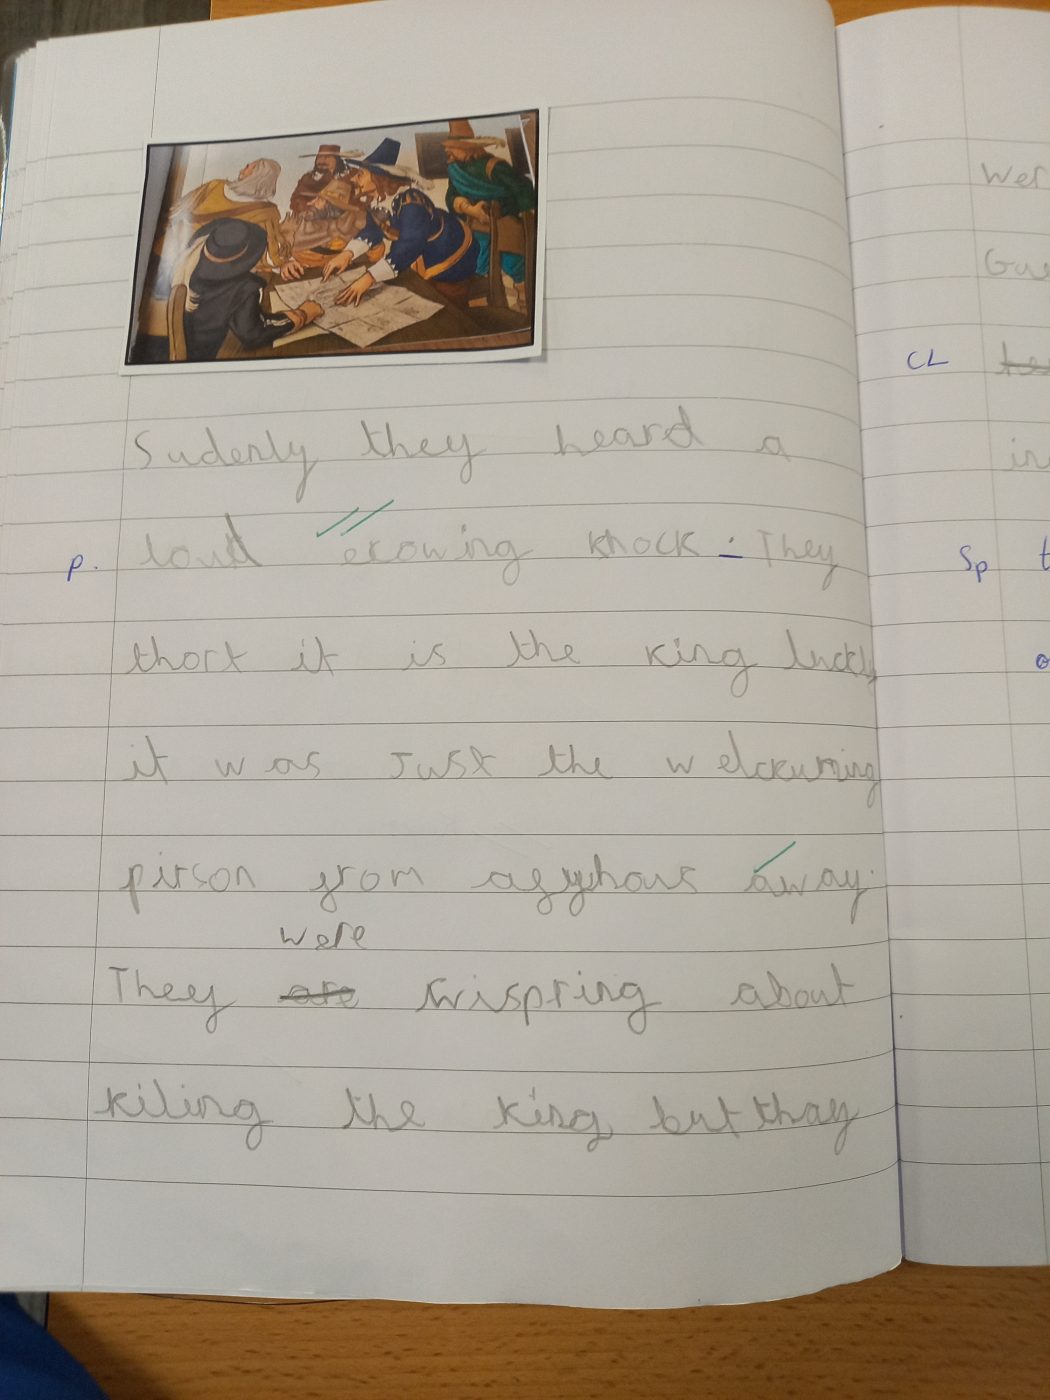 Sudenly they heard a
p. loud ecowing knock. They
thort it is the king luckly
it was just the welcuming
pirson from away.
were
They are wispring about
kiling the king but thay
Wer
CL
in
Sp t